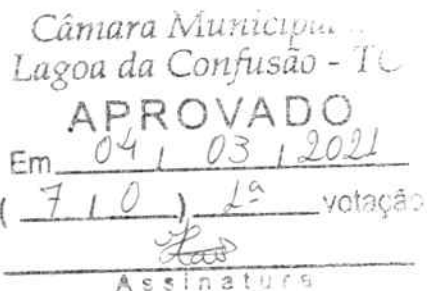 Câmara Municipal
Lagoa da Confusão - TO
APROVADO
Em 04 / 03 / 2021
( 7 / 0 ) 1ª votação
Assinatura